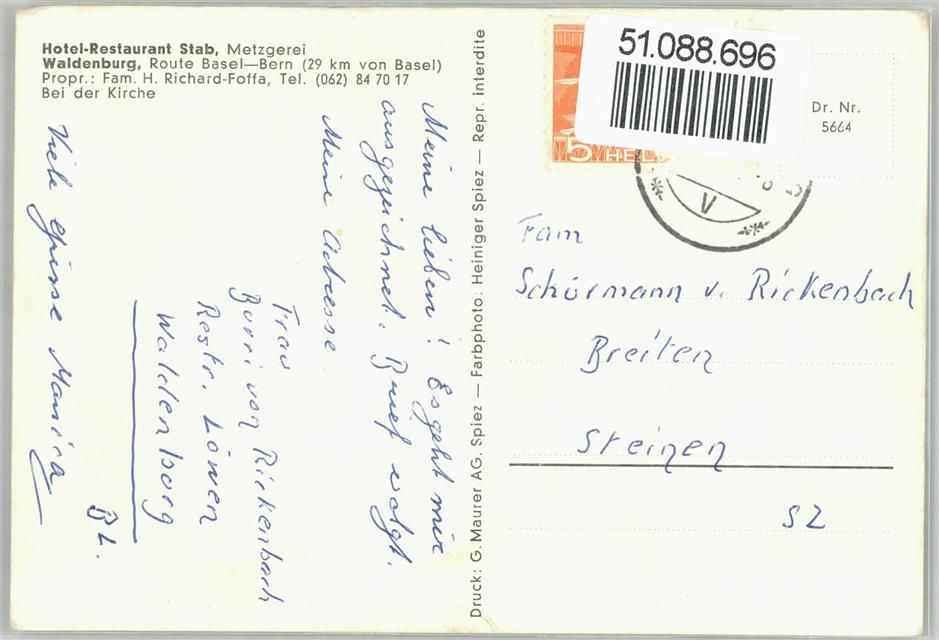 Hotel-Restaurant Stab, Metzgerei
Waldenburg, Route Basel—Bern (29 km von Basel)
Propr.: Fam. H. Richard-Foffa, Tel. (062) 84 70 17
Bei der Kirche
Meine lieben! Es geht mir
ausgezeichnet. Brief volgt.
Meine Adresse.
Frau
Burri von Rickenbach
Restr. Löwen
Waldenburg
BL.
Viele Grüsse Marira
Druck: G. Maurer AG. Spiez — Farbphoto: Heiniger Spiez — Repr. interdite
51.088.696
5 HEL
V
Dr. Nr.
5664
Fam
Schürmann v. Rickenbach
Breiten
Steinen
SZ